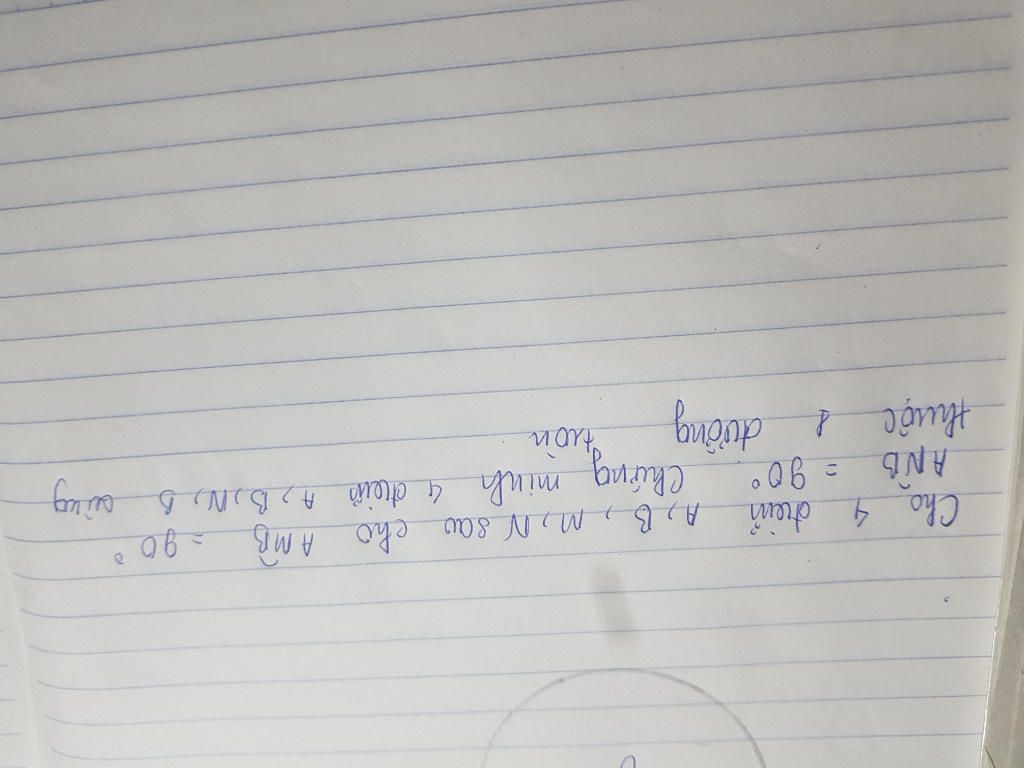 Cho 4 điểm A, B, M, N sao cho AM̂B = 90°
AN̂B = 90°. Chứng minh 4 điểm A, B, N, B cùng
thuộc 1 đường tròn